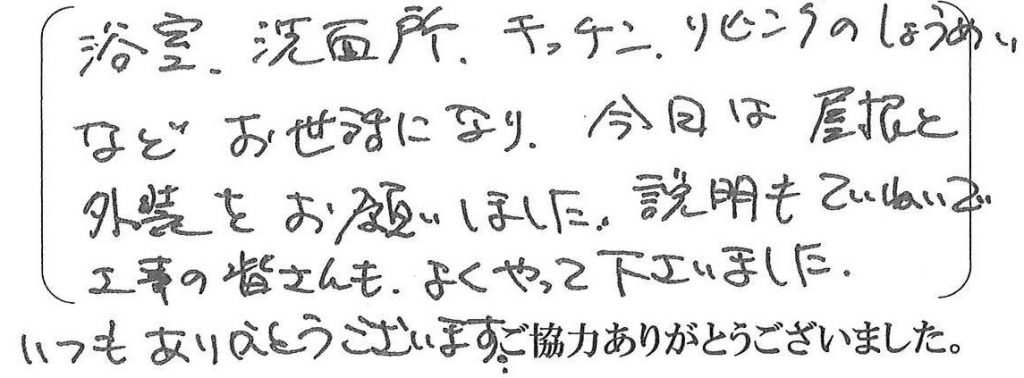 浴室、洗面所、キッチン、リビングのしょうめい
など お世話になり、今回は 屋根と
外装を お願いしました。説明もていねいで
工事の皆さんも、よくやって下さいました。
いつもありがとうございます。ご協力ありがとうございました。